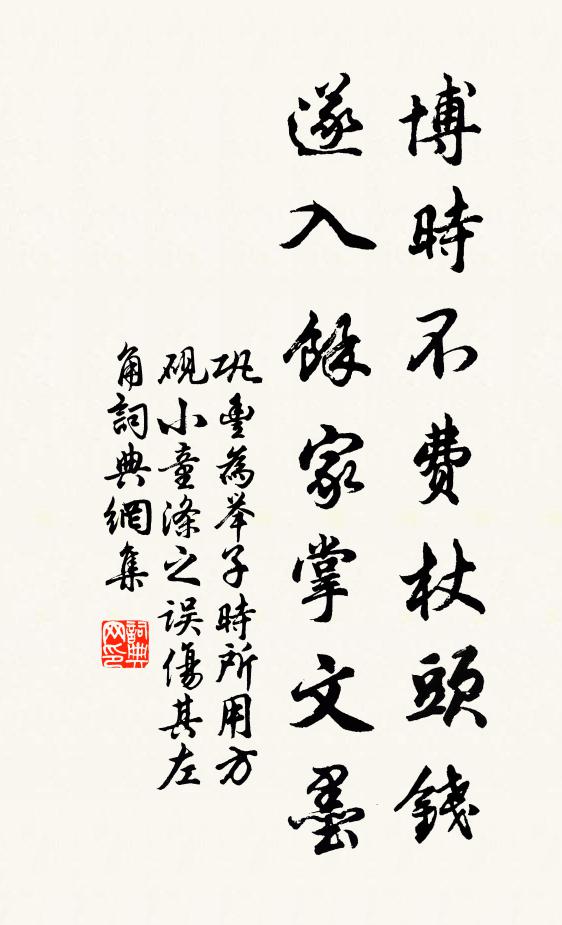 博時不費杖頭錢
遂入餘家掌文墨
巩豊為举子時所用方
硯小童滌之误傷其左
角詞典網集
詞典
网印